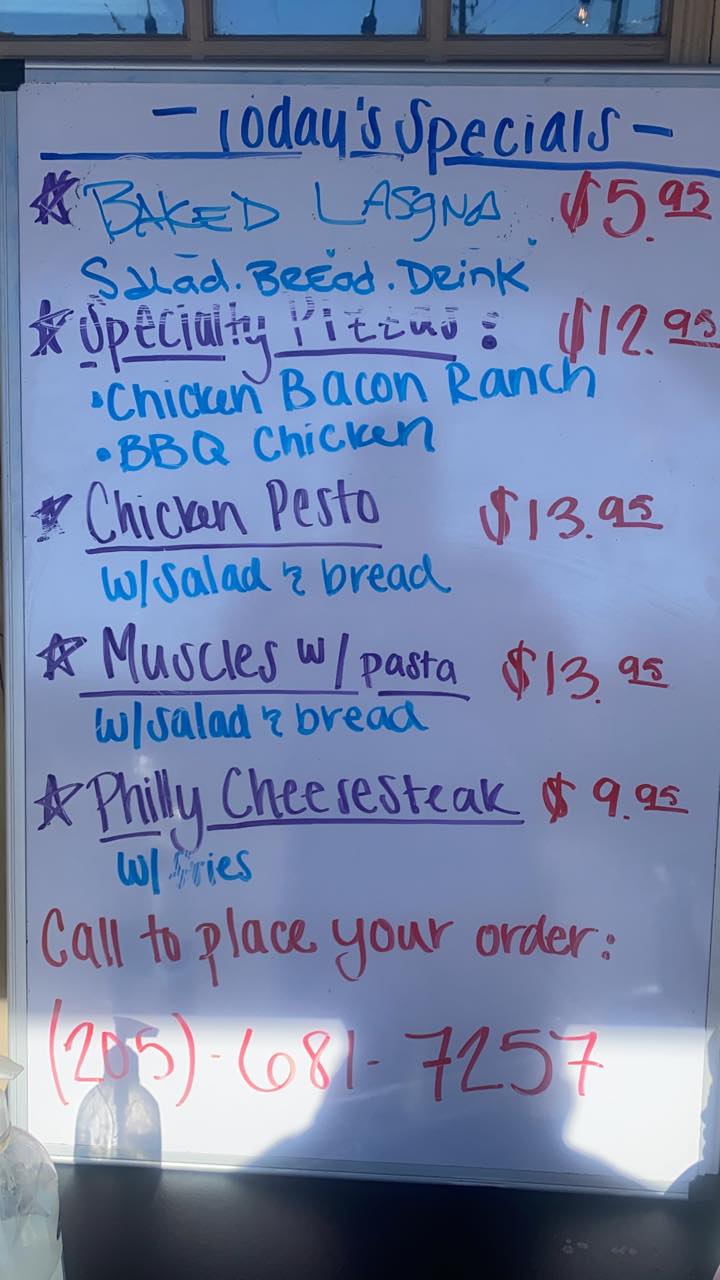 - Today's Specials -
BAKED LASGNA $5.95
Salad. Bread. Drink
Specialty Pizzas: $12.95
• Chicken Bacon Ranch
• BBQ Chicken
Chicken Pesto $13.95
w/salad & bread
Muscles w/ pasta $13.95
w/salad & bread
Philly Cheesesteak $9.95
w/ fries
Call to place your order:
(205)-681-7257